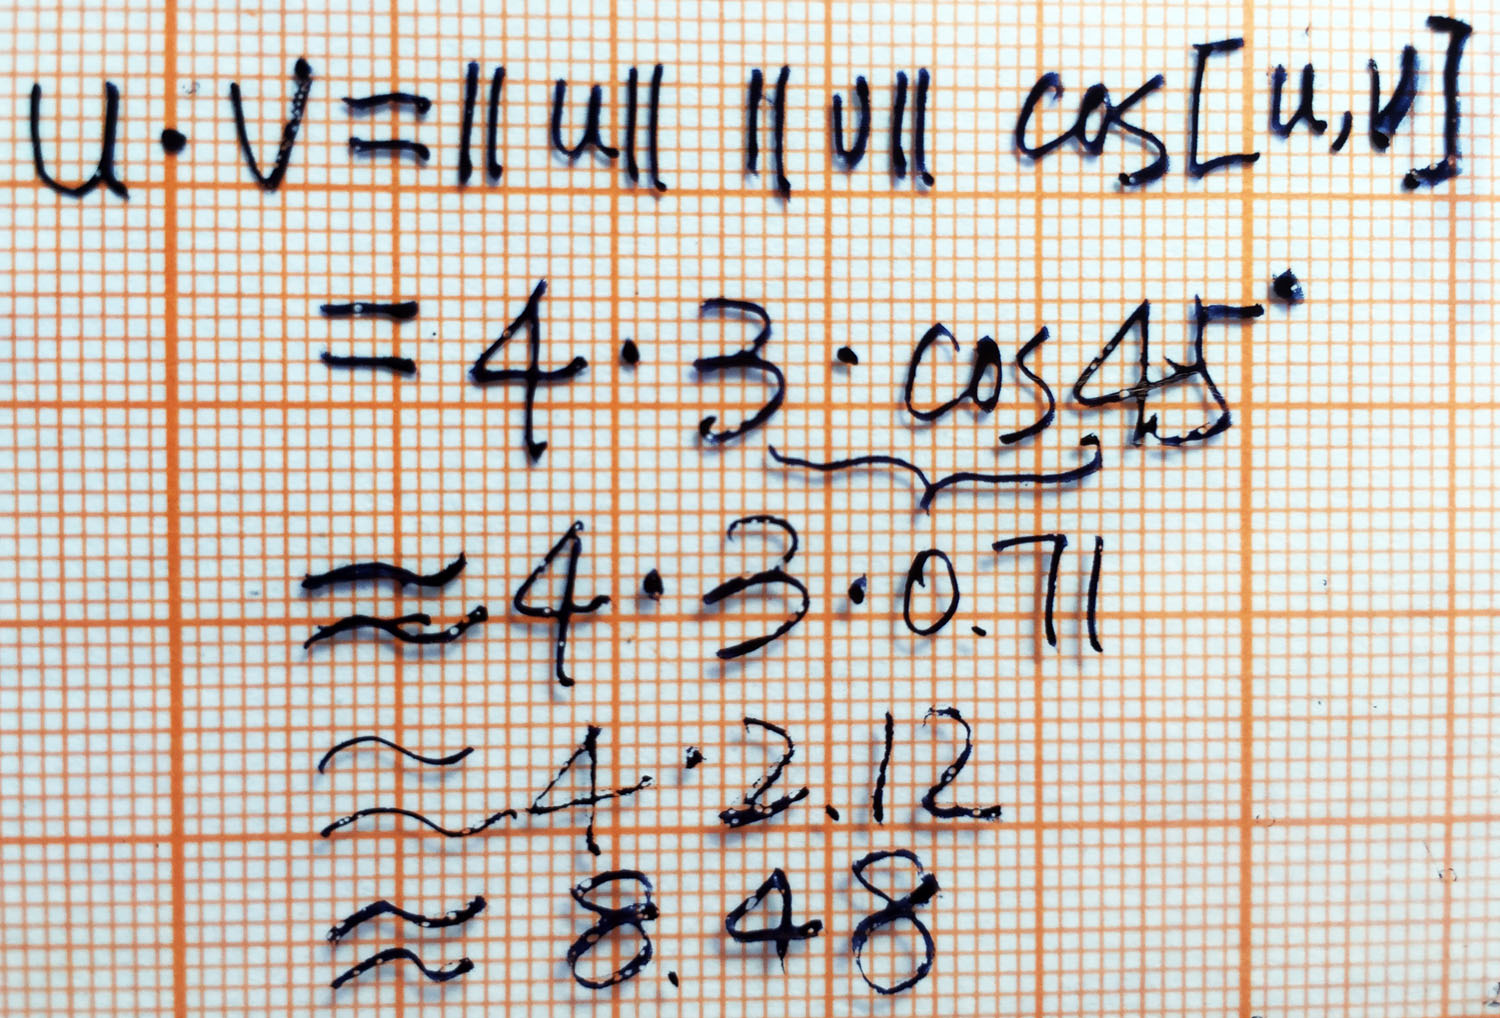 u · v = || u || || v || cos [u, v]
= 4 · 3 · cos 45°
≈ 4 · 3 · 0.71
≈ 4 · 2.12
≈ 8.48